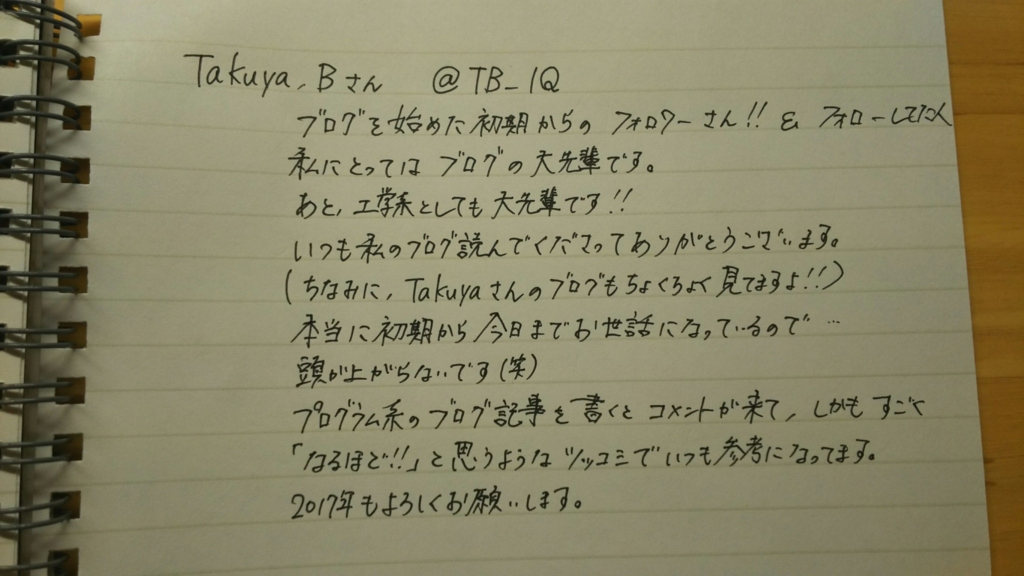 Takuya.Bさん @TB_IQ
ブログを始めた初期からのフォロワーさん!! & フォローしてた人
私にとってはブログの大先輩です。
あと、工学系としても大先輩です!!
いつも私のブログ読んでくださってありがとうございます。
(ちなみに、Takuyaさんのブログもちょくちょく見てますよ!!)
本当に初期から今日までお世話になっているので…
頭が上がらないです(笑)
プログラム系のブログ記事を書くとコメントが来て、しかもすごく
「なるほど!!」と思うようなツッコミでいつも参考になってます。
2017年もよろしくお願いします。